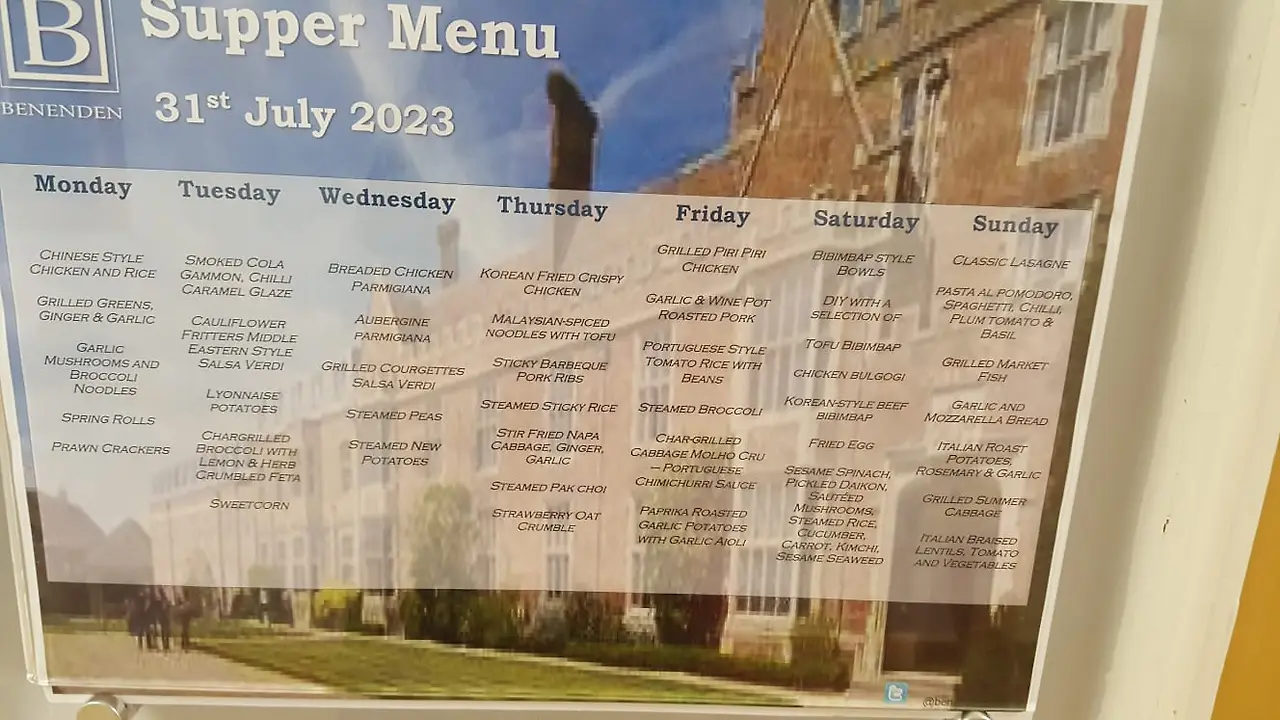 B
BENENDEN
Supper Menu
31st July 2023
Monday
CHINESE STYLE
CHICKEN AND RICE
GRILLED GREENS,
GINGER & GARLIC
GARLIC
MUSHROOMS AND
BROCCOLI
NOODLES
SPRING ROLLS
PRAWN CRACKERS
Tuesday
SMOKED COLA
GAMMON, CHILLI
CARAMEL GLAZE
CAULIFLOWER
FRITTERS MIDDLE
EASTERN STYLE
SALSA VERDI
LYONNAISE
POTATOES
CHARGRILLED
BROCCOLI WITH
LEMON & HERB
CRUMBLED FETA
SWEETCORN
Wednesday
BREADED CHICKEN
PARMIGIANA
AUBERGINE
PARMIGIANA
GRILLED COURGETTES
SALSA VERDI
STEAMED PEAS
STEAMED NEW
POTATOES
Thursday
KOREAN FRIED CRISPY
CHICKEN
MALAYSIAN-SPICED
NOODLES WITH TOFU
STICKY BARBEQUE
PORK RIBS
STEAMED STICKY RICE
STIR FRIED NAPA
CABBAGE, GINGER,
GARLIC
STEAMED PAK CHOI
STRAWBERRY OAT
CRUMBLE
Friday
GRILLED PIRI PIRI
CHICKEN
GARLIC & WINE POT
ROASTED PORK
PORTUGUESE STYLE
TOMATO RICE WITH
BEANS
STEAMED BROCCOLI
CHAR-GRILLED
CABBAGE MOLHO CRU
– PORTUGUESE
CHIMICHURRI SAUCE
PAPRIKA ROASTED
GARLIC POTATOES
WITH GARLIC AIOLI
Saturday
BIBIMBAP STYLE
BOWLS
DIY WITH A
SELECTION OF
TOFU BIBIMBAP
CHICKEN BULGOGI
KOREAN-STYLE BEEF
BIBIMBAP
FRIED EGG
SESAME SPINACH,
PICKLED DAIKON,
SAUTÉED
MUSHROOMS,
STEAMED RICE,
CUCUMBER,
CARROT, KIMCHI,
SESAME SEAWEED
Sunday
CLASSIC LASAGNE
PASTA AL POMODORO,
SPAGHETTI, CHILLI,
PLUM TOMATO &
BASIL
GRILLED MARKET
FISH
GARLIC AND
MOZZARELLA BREAD
ITALIAN ROAST
POTATOES,
ROSEMARY & GARLIC
GRILLED SUMMER
CABBAGE
ITALIAN BRAISED
LENTILS, TOMATO
AND VEGETABLES